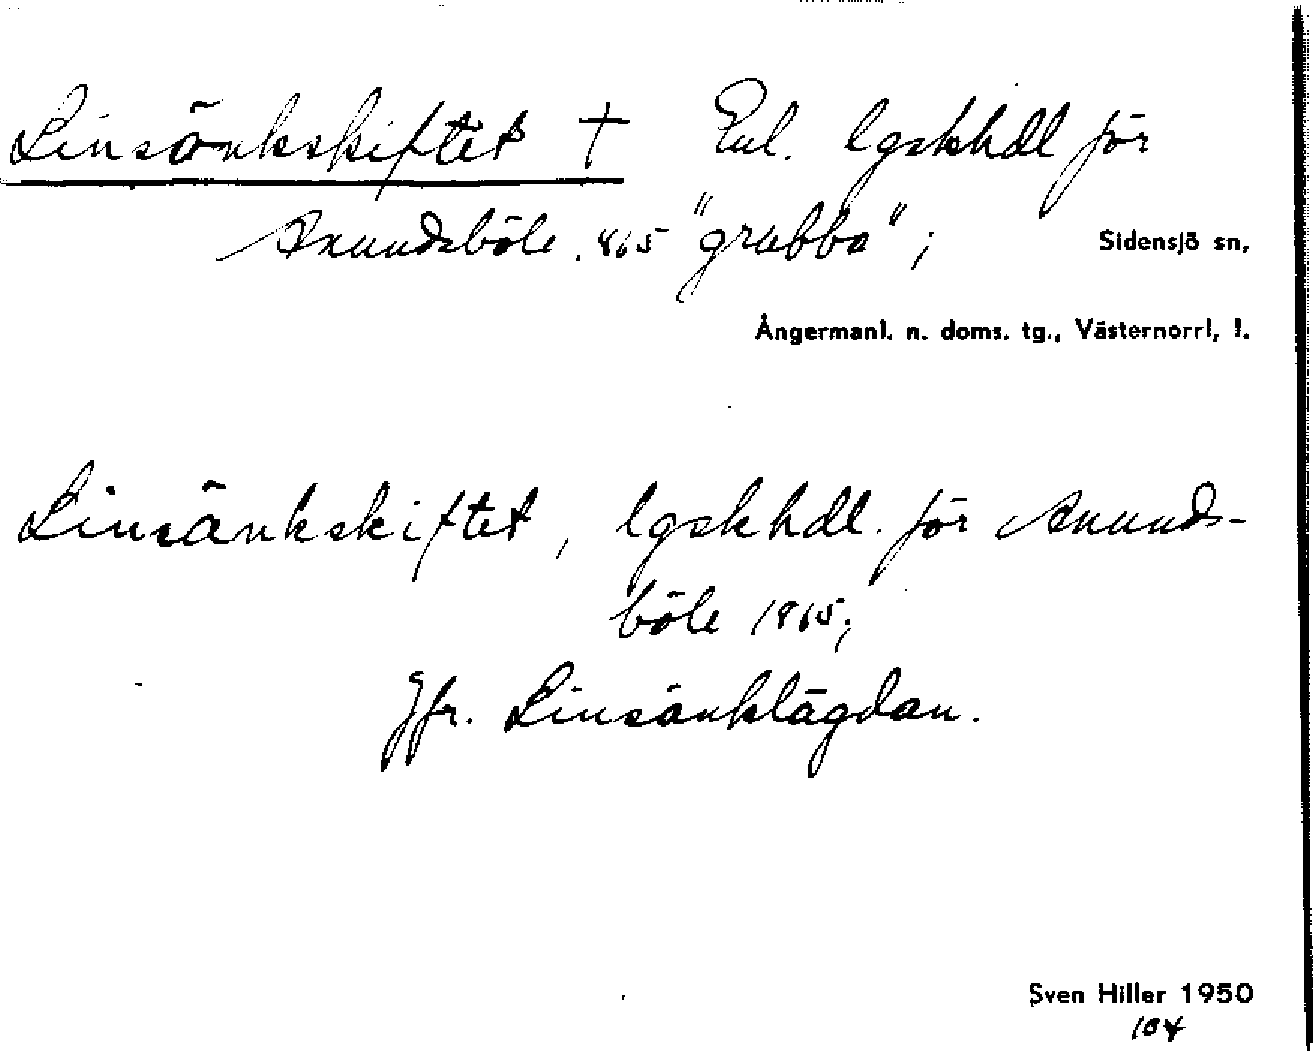 Linsänkskiftet † Enl. lgskhdl för
Anundsböle 1865 "grubba";
Sidensjö sn,
Ångermanl. n. doms. tg., Västernorrl, l.
Linsänkskiftet, lgskhdl. för Anunds-
böle 1865;
Jfr. Linsänklägdan.
Sven Hiller 1950
104